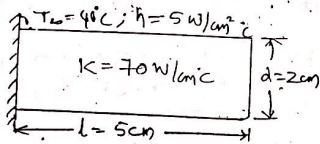 T∞ = 40°C ; h = 5 W/cm² °C
K = 70 W/cm°C
d = 2cm
l = 5cm